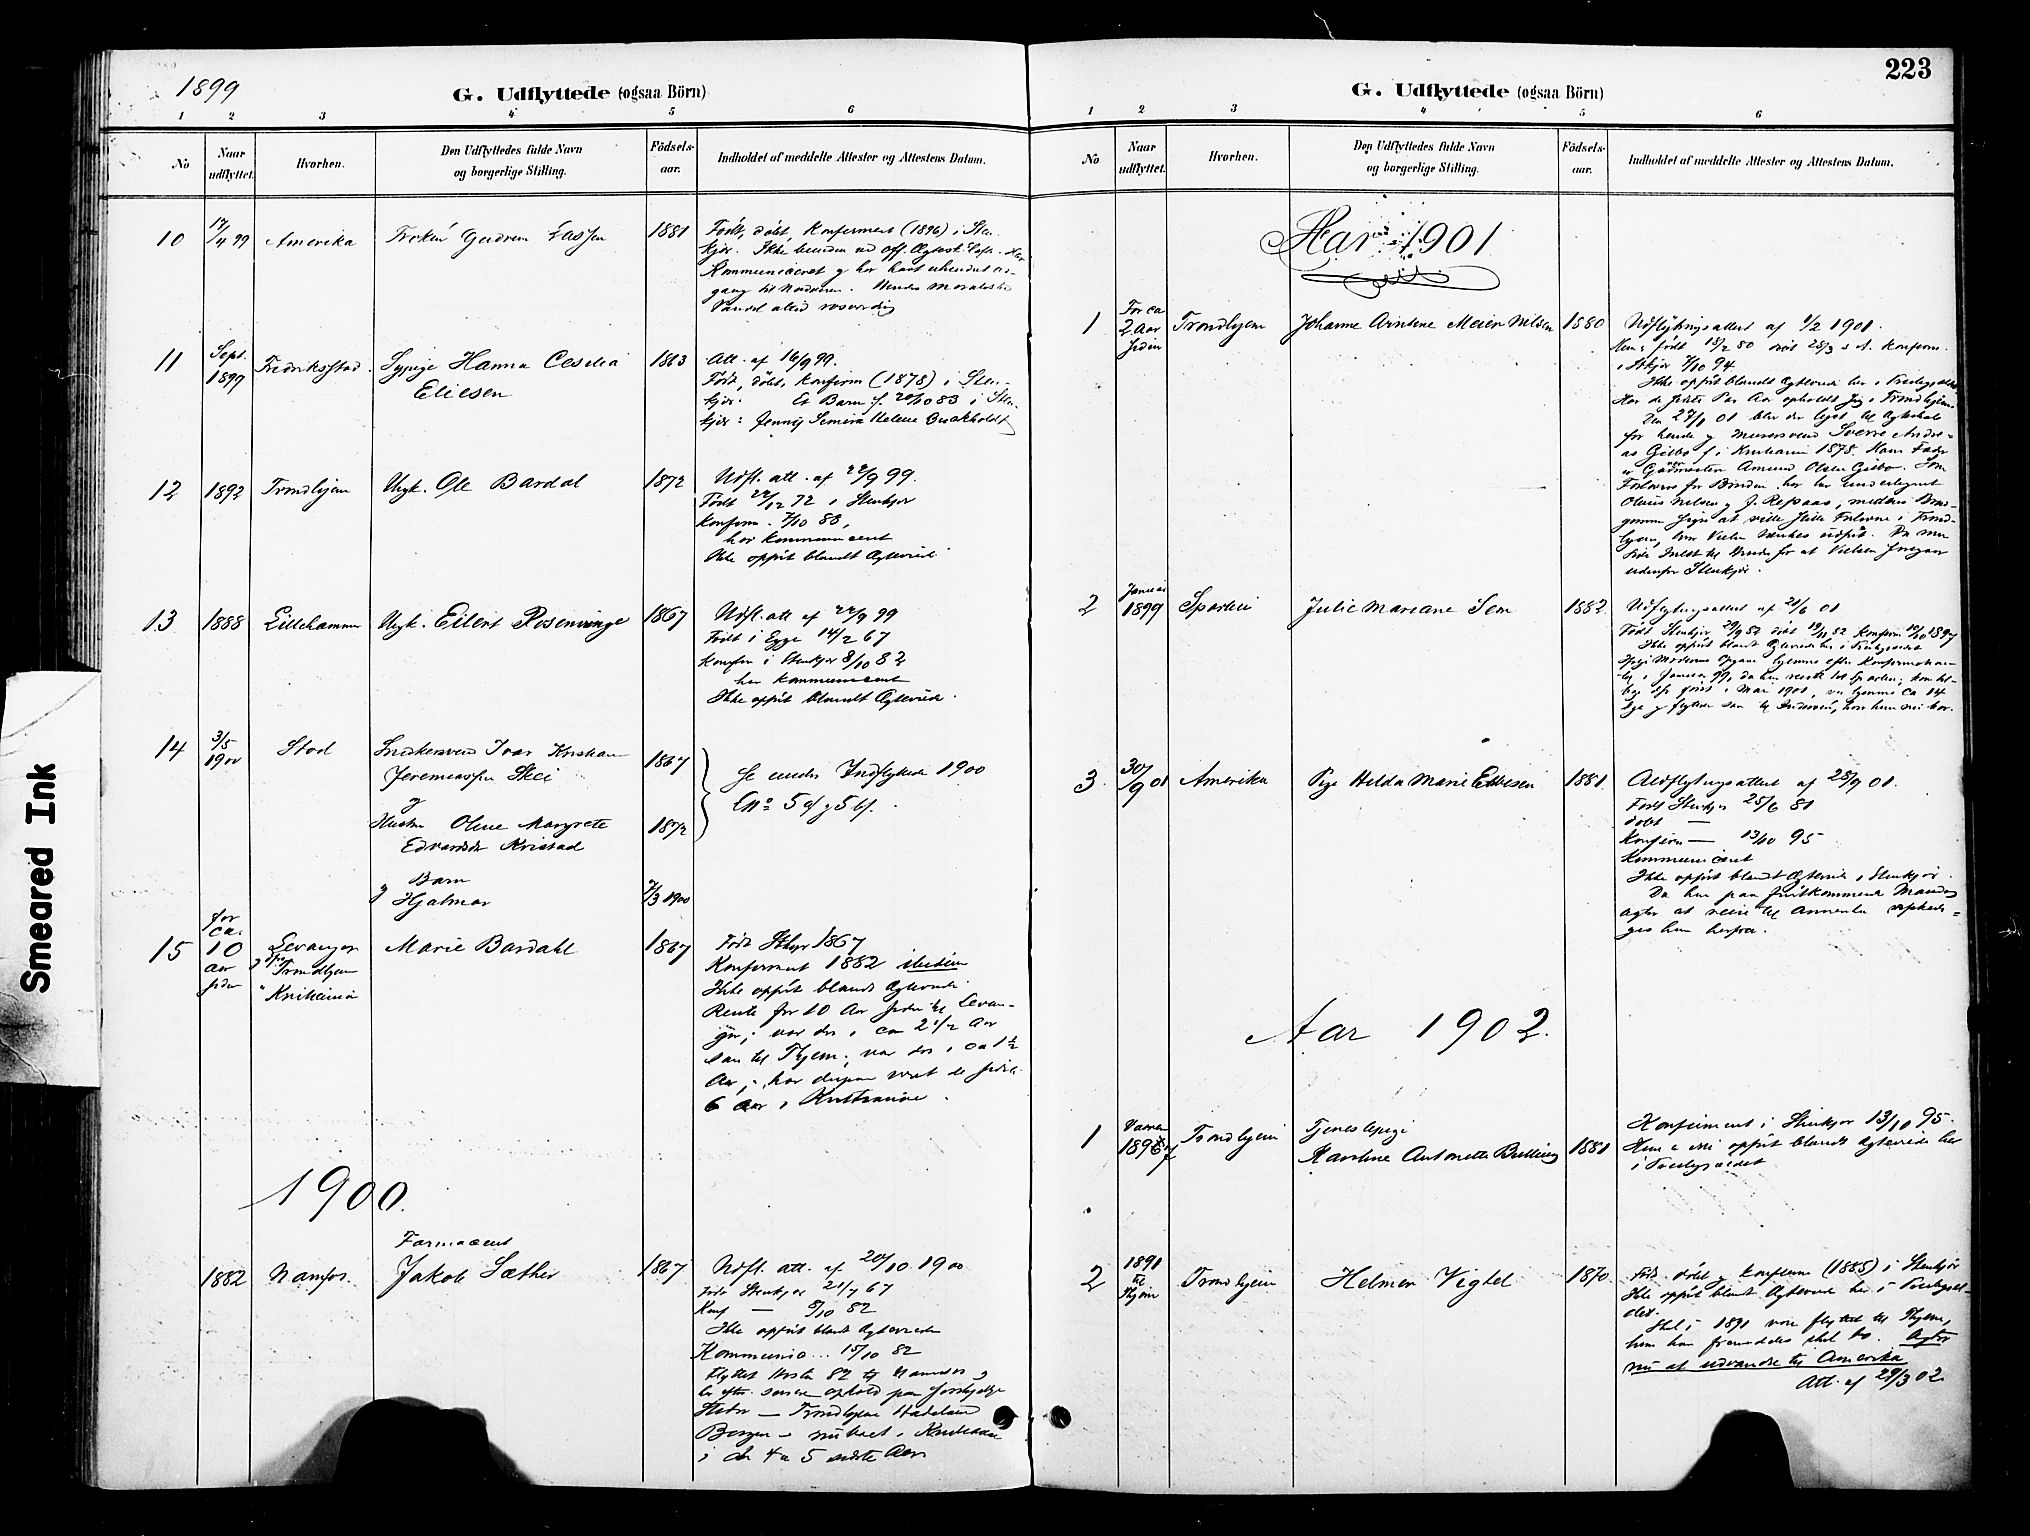 1899
G. Udflyttede (ogsaa Börn)
1 2 3 4 5 6
No
Naar udflyttet.
Hvorhen.
Den Udflyttedes fulde Navn og borgerlige Stilling.
Födsels-aar.
Indholdet af meddelte Attester og Attestens Datum.
10
17/4 99
Amerika
Frøken Gudrun Lassen
1881
Født, døbt, konfirmert (1896) i Sten-
kjær. Ikke bunden ved off. Ægtesk. Løfte. Har
Kommuniceret og har havt uhindret ad-
gang til Nadveren. Hendes moralske
Vandel altid rosværdig
11
Sept. 1899
Fredriksstad.
Sypige Hanna Cesilia
Eliesen
1863
Att. af 16/9 99.
Født, døbt, konfirm (1878) i Sten-
kjær. Et Barn f. 20/10 83 i Sten-
kjær: Jenny
12
1892
Trondhjem
Ungk. Ole Bardal
1872
Udfl. att. af 22/9 99.
Født 22/12 72 i Stenkjær
konfirm. 7/10 88,
har kommunicert
Ikke opført blandt Ægteviede
13
1888
Lillehammer
Ungk. Eilert Rosenvinge
1867
Udfl. att af 22/9 99
Født i Egge 14/2 67
Konfirm i Stenkjær 8/10 82
har kommunicert
Ikke opført blandt Ægteviede.
14
3/5 1900
Stod
Snedkersvend Ivar Kristian
Jeremiassen Skei
1867
Se under Indflyttede 1900
No 5 a og 5 b.
og
Hustru Oline Margrete
Edvardsdr Kvistad
1872
Barn
og Hjalmar
7/3 1900
15
for ca. 10 aar siden
Levanger
Trondhjem
" Kristiania
Marie Bardahl
1867
Født Stkjær 1867
Konfirmert 1882
Ikke opført blandt Ægteviede
Reiste for 10 Aar siden til Levan-
ger; var der i ca 2 1/2 Aar
saa til Thjem; var der i ca 1 1/2
Aar; har derpaa været de sidste
6 Aar i Kristiania.
1900.
1882
Namsos.
Farmaceut
Jakob Sæther
1867
Udfl. att. af 20/10 1900
Født Stenkjær 21/7 67
Konf — 8/10 82
Ikke opført blandt Ægteviede
Kommunic... 15/10 82
Flyttet Høsten 82 til Namsos og
er efter senere ophold paa forskjellige
Steder — Trondhjem Hadeland
Bergen — nu boet i Kristiania
i de 4 a 5 sidste Aar
223
G. Udflyttede (ogsaa Börn)
1 2 3 4 5 6
No
Naar udflyttet.
Hvorhen.
Den Udflyttedes fulde Navn og borgerlige Stilling.
Födsels-aar.
Indholdet af meddelte Attester og Attestens Datum.
Aar 1901
1
For ca 2 Aar siden
Trondhjem
Johanne Arntine Meier Nilsen
1880
Udflytningsattest af 1/2 1901.
Hun er født 18/2 80 døbt 28/3 s. A. Konfirm.
i Stkjær 7/10 94
Ikke opført blandt Ægteviede her i Præstegjældet
Har de sidste Par Aar opholdt sig i Trondhjem
Den 27/1 01 blev der lyst til Ægteskab
for hende og Murersvend Sverre Andre-
as Gisbo f. i Kristiania 1878. Hans Fader
er Gaardmester Amund Olsen Gisbo. Som
Forlovere for Bruden har her underskrevet
Olaus Nilsen og J. Refsaas, medens Brud-
gommen siger at ville stille Forlovere i Trond-
hjem, hvor Vielsen ønskes udført.
udenfor Stenkjær.
2
Januar 1899
Sparbu
Julie Mariane Sem
1882
Udflytningsattest af 21/6 01
Født Stenkjær 29/9 82 døbt 19/11 82 Konfirm 10/10 1897
Ikke opført blandt Ægteviede her i Præstegjældet
3
30/9 01
Amerika
Pige Helda Marie Ellesen
1881
Udflytningsattest af 28/9 01.
Født Stenkjær 25/6 81
døbt —
Konfirm — 13/10 95
Kommunicert
Ikke opført blandt Ægteviede i Stenkjær.
Da hun paa førstkommende Mandag
agter at reise til Amerika
ges hun herfra.
Aar 1902.
1
Vaaren 1896/7
Trondhjem
Tjenestepige
Karoline Antonette Belling
1881
Konfirmert i Stenkjær 13/10 95.
Hun er ikke opført blandt Ægteviede her
i Præstegjældet
2
1891 til Thjem
Trondhjem
Helmer Vigdel
1870
Født, døbt og konfirm (1885) i Stenkjær
Ikke opført blandt Ægteviede her i Præstegjæl-
det.
Skal i 1891 være flyttet til Thjem,
hvor han fremdeles skal bo. Agter
nu at udvandre til Amerika
Att. af 29/3 02.
Smeared Ink